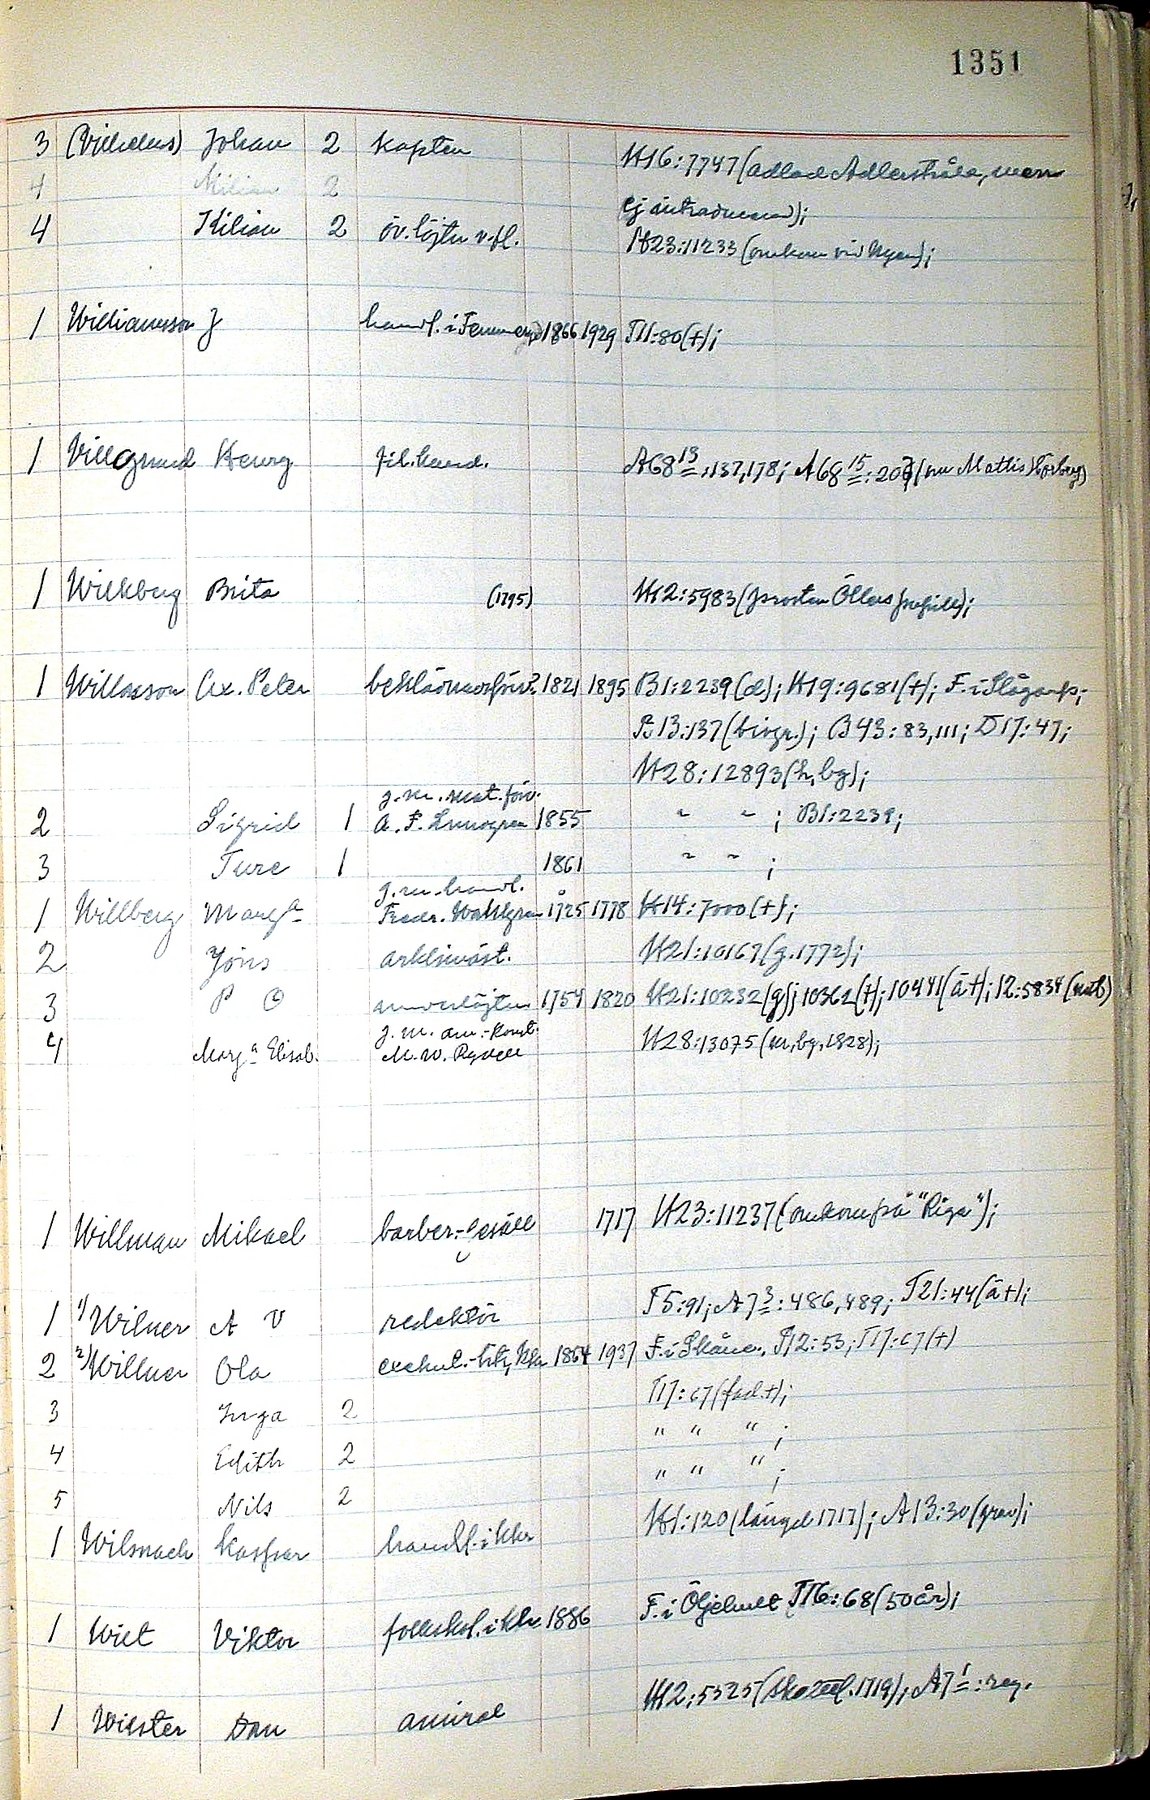 1351
3 (Vilhelms) Johan 2 kapten H16:7747 (adlad Adlerstråle, men
4 Kilian 2 ej introducerad);
4 Kilian 2 öv.löjtn v. fl. H23:11233 (omkom vid Nyen);
1 Williamsson J handl. i 1866 1929 T11:80(+);
1 Villgrund Henry fil. kand. A68 13:137,178; A68 15:207 (om Mattis)
1 Willkberg Brita (1795) H12:5983 (prosten Öllers);
1 Willaxson Ax. Peter beklädnadsförv. 1821 1895 B1:2239(d); H19:9681(+); F. i Flågarp;
P13:137 (biogr.); B43:83,111; D17:47;
H28:12893 (h, bg);
g. m. mat. förv.
2 Sigrid 1 A. F. 1855 " " ; B1:2239;
3 Ture 1 1861 " " ;
g. m. handl.
1 Willberg Marg:a Fredr. Wahlgren 1725 1778 H14:7000(+);
2 Jöns arklimäst. H21:10167 (g. 1772);
3 P O underlöjtn 1754 1820 H21:10232(g); 10362(+); 10441(ä+); 12:5834
g. m. am.-konst.
4 Marg:a Elisab. M. W. Rydell H28:13075 (m, bg, 1828);
1 Willman Mikael barber.-gesäll 1717 H23:11237 (omkom på "Riga");
1 1) Wilner A V redaktör T5:91; A7 3:486,489; T21:44(ä+);
2 2) Willner Ola 1864 1937 F. i Skåne, P12:53; T17:67(+)
3 Inga 2 T17:67 (fad. +);
4 Edith 2 " " " ;
5 Nils 2 " " " ;
1 Wilsnach Kasper handl. i kkr H1:120 (längd 1717); A13:30 (grav);
1 Wilt Viktor folkskol. i kkr 1886 F. i Öljehult T16:68 (50 år);
1 Wilster Dan amiral H12:5325; A7 1:reg.